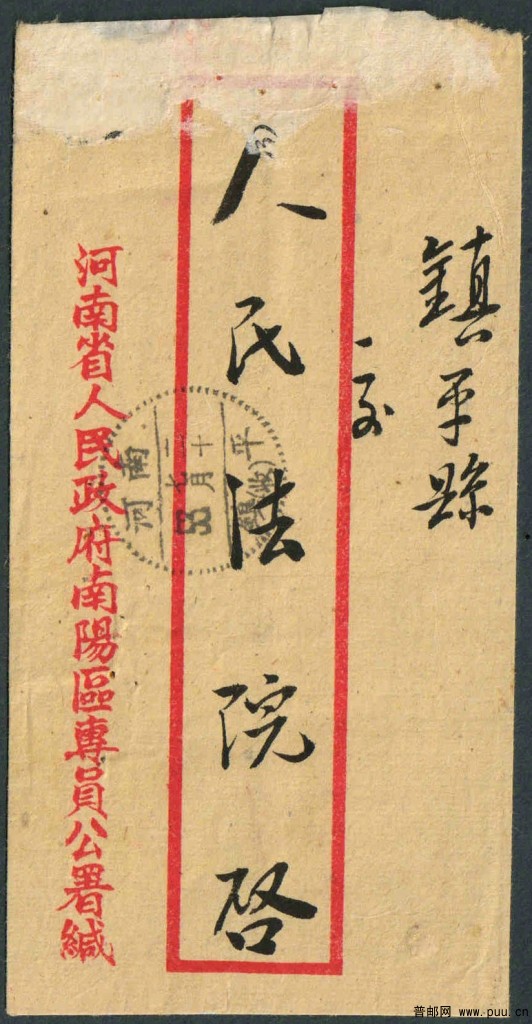 鎮平縣
人民法院啓
河南省人民政府南陽區專員公署緘
河南
普邮网 www.puu.cn